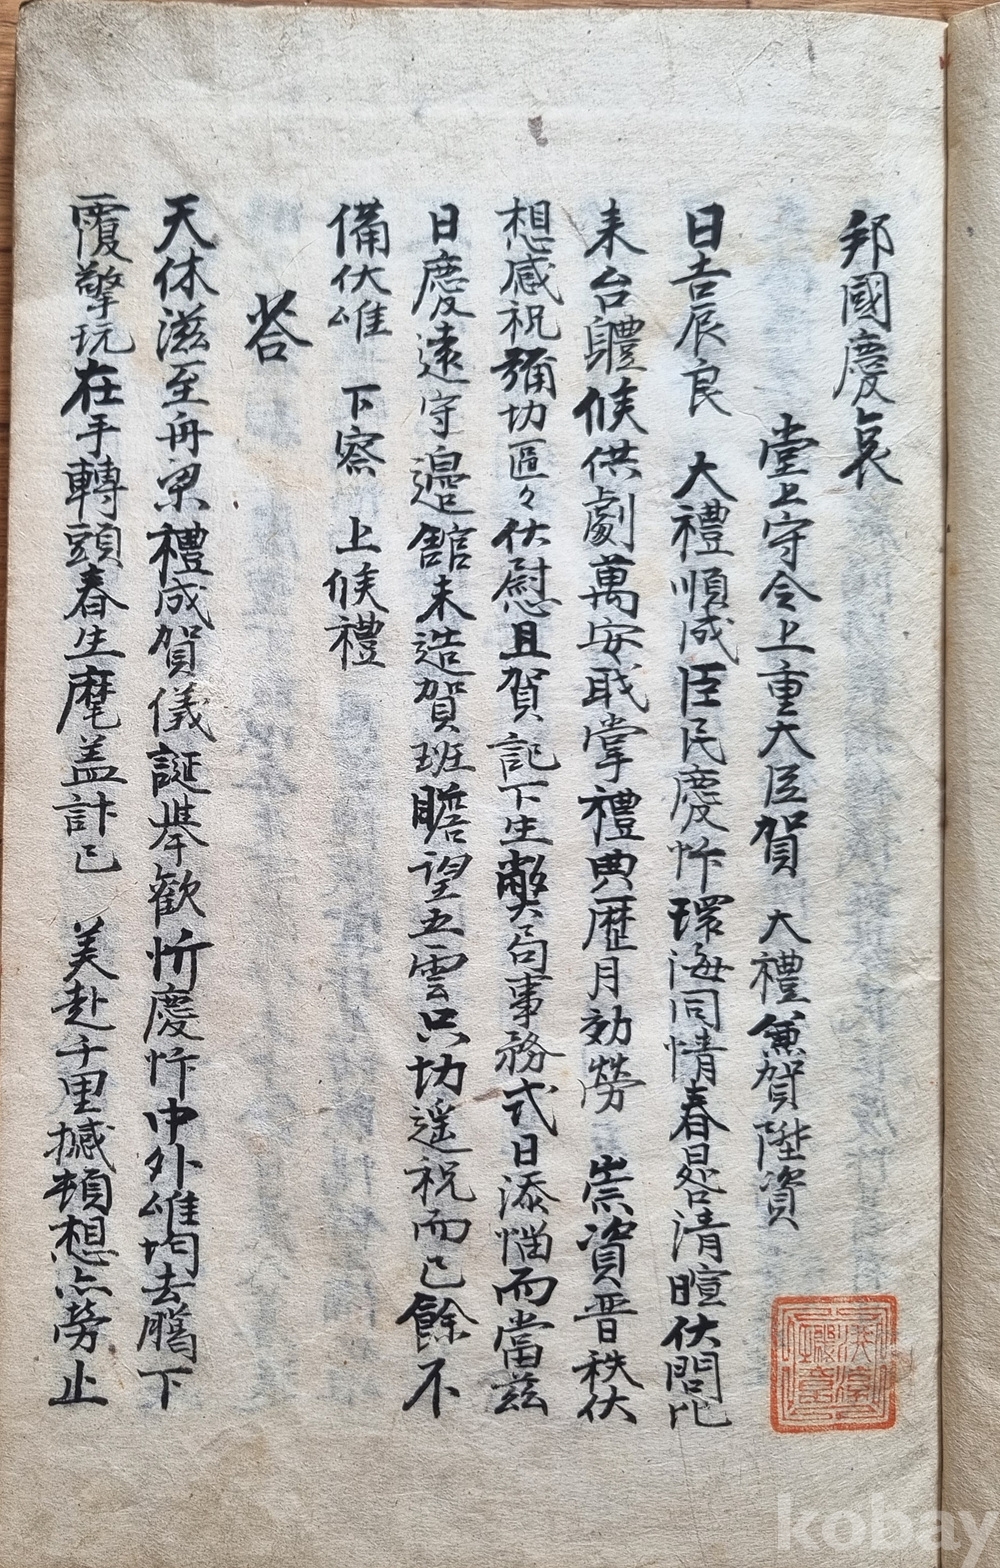 邦國慶亽哀
堂上守令上重大臣賀 大禮兼賀陞資
日吉辰良 大禮順成臣民慶忭環海同情春晷清暄伏問比
来台軆候供劇萬安戢掌禮典歷月効勞 崇資晋秩伏
想感祝彌切區々伏慰且賀記下生獘局事務式日添惱而當兹
日慶遠守邉舘未造賀班瞻望五雲只切遥祝而已餘不
備伏惟 下察 上候禮
答
天休滋至冊累禮成賀儀誕擧歡忻慶忭中外惟均去臈下
覆擎玩在手轉頭春生麾盖計已 美赴千里撼頓想亽勞止
kobay